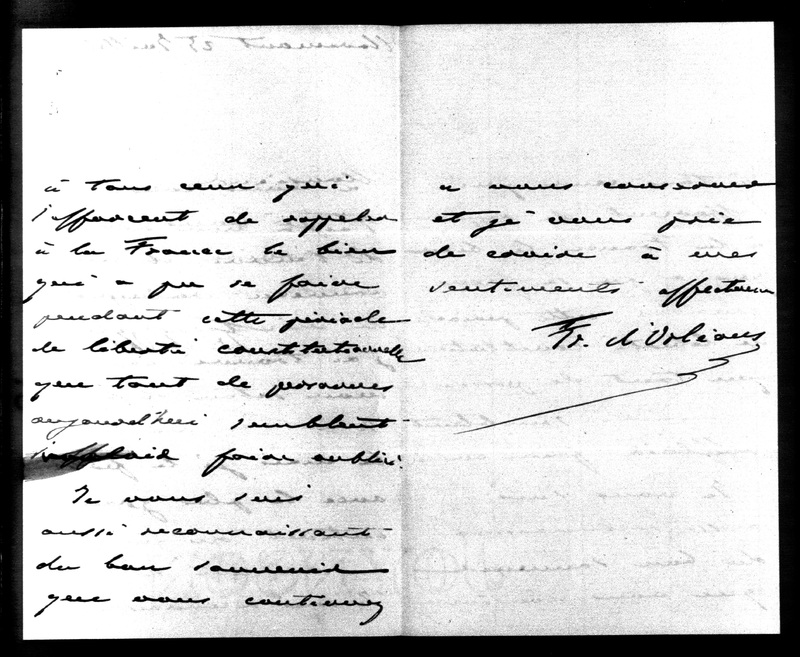 à tous ceux qui
s'efforcent de rappeler
à la France le bien
qui a pu se faire
pendant cette période
de liberté constitutionnelle
que tant de personnes
aujourd'hui semblent
faire oublier.
Je vous suis
aussi reconnaissant
du bon souvenir
que vous continuez
à nous conserver
et je vous prie
de croire à mes
sentiments affectueux
Fr. d'Orléans